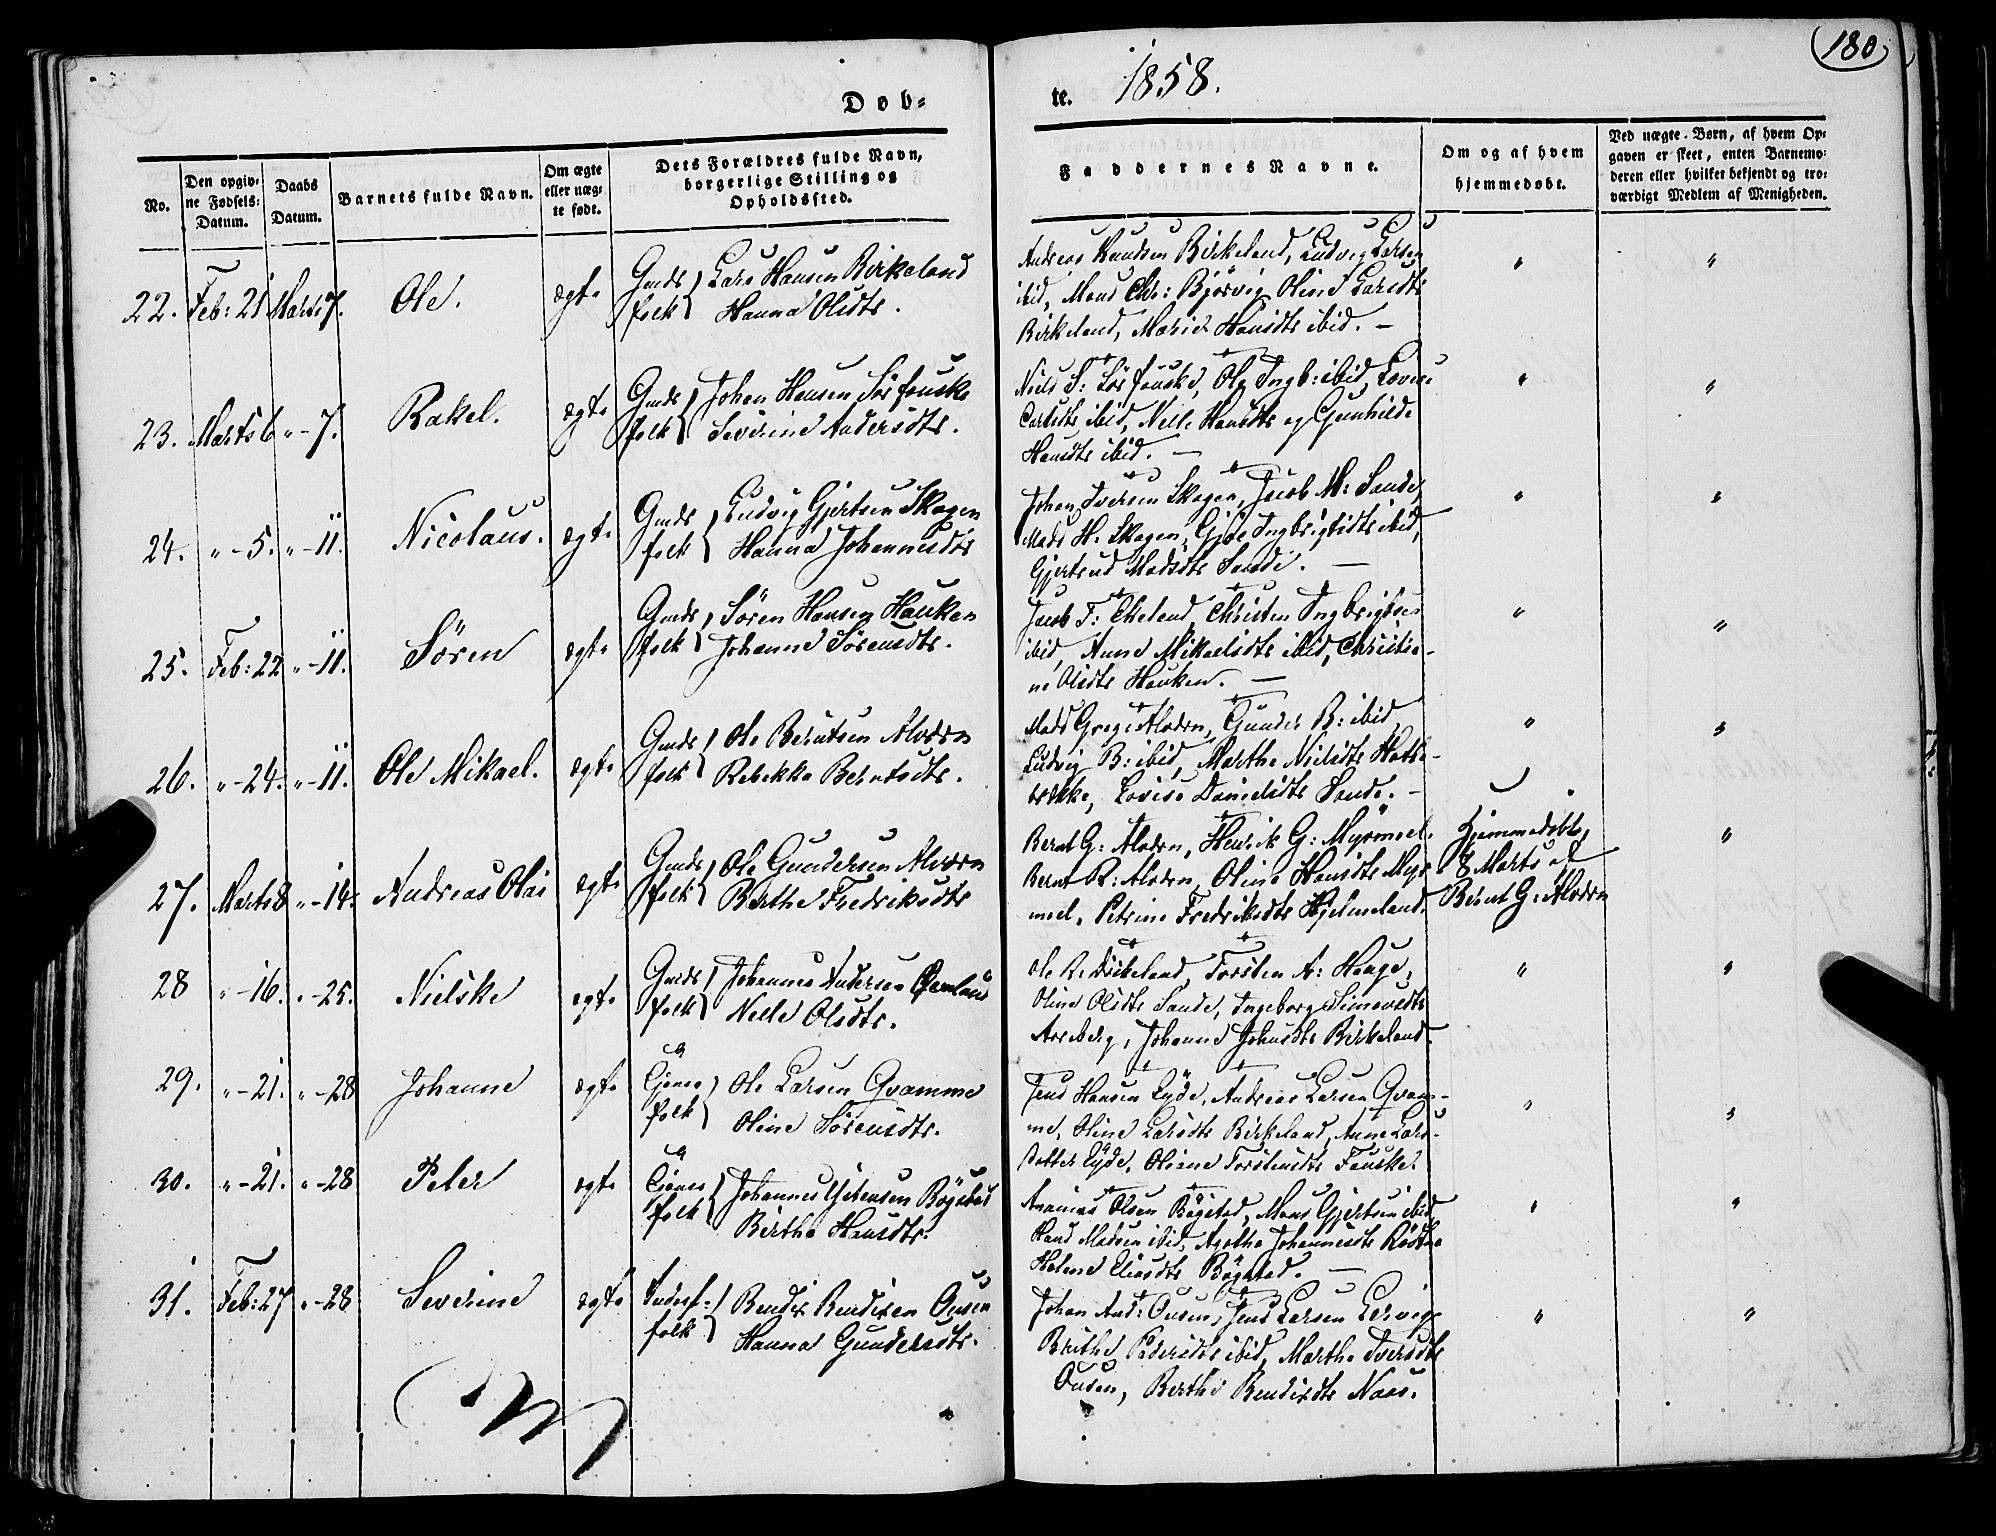 180
Døb-
te. 1858.
No.
Den opgiv-
ne Fødsels-
Datum.
Daabs
Datum.
Barnets fulde Navn.
Om ægte
eller uæg-
te født.
Dets Forældres fulde Navn,
borgerlige Stilling og
Opholdssted.
Faddernes Navne.
Om og af hvem
hjemmedøbt.
Ved uægte Børn, af hvem Op-
gaven er skeet, enten Barnemo-
deren eller hvilket bekjendt og tro-
værdigt Medlem af Menigheden.
22. Feb: 21 Marts 7. Ole. ægte Gmds folk Lars Hansen Birkeland
Hanna Olsdtr.
Andreas Knudsen Birkeland, Ludvig Larsen " "
ibid, Mons Chr: Bjørvig, Oline Larsdtr
Birkeland, Marie Hansdtr ibid. -
23. Marts 6 " - 7. Rakel. ægte Gmds folk Johan Hansen Sørfouske
Severine Andersdtr.
Niels S: Sørfouske, Ole Ingb: ibid, Lovise " "
Carlsdtr ibid, Nille Hansdtr og Gunhilde
Hansdtr ibid. -
24. " - 5. " - 11. Nicolaus. ægte Gmds folk Ludvig Gjertsen Skogen
Hanna Johannesdtr
Johan Iversen Skogen, Jacob M: Sande, " "
Mads H. Skogen, Ingbrigtsdtr ibid,
Gjertrud Madsdtr Sande. -
25. Feb: 22 " - 11. Søren ægte Gmds folk Søren Hansen Hauken
Johanne Sørensdtr.
Jacob T: Christen Ingbrigtsen " "
ibid, Anne Mikaelsdtr ibid, Christia-
ne Olsdtr Hauken. -
26. " - 24. " - 11. Ole Mikael. ægte Gmds folk Ole Berntsen Alværn
Rebekka Berntsdtr.
Mads Greg: Alværn, Gunder B: ibid, " "
Ludvig B: ibid, Marthe Nielsdtr
Lovise Danielsdtr Sande. -
27. Marts 8 " - 14. Andreas Olai ægte Gmds folk Ole Gundersen Alværn
Berthe Fredriksdtr
Bernt G: Alværn, Henrik G: Myrmel. Hjemmedøbt "
Bernt R: Alværn, Oline Hansdtr Myr- 8 Marts af
mel, Petrine Fredriksdtr Hjelmeland. Bernt G: Alværn
28 " - 16. " - 25. Nielske ægte Gmds folk Johannes Andersen
Nille Olsdtr.
Ole R: Birkeland, Torsten A: Hauge, " "
Oline Olsdtr Sande, Ingeborg Simonsdtr
Johanne Johnsdtr Birkeland.
29. " - 21. " - 28 Johanne ægte Tjenes folk Ole Larsen Qvamme
Oline Sørensdtr.
Jens Hansen Eyde, Andreas Larsen Qvam- " "
me, Oline Larsdtr Birkeland, Anne Lars-
datter Eyde, Oliane Torstensdtr Fouske.
30. " - 21. " - 28 Peter ægte Tjenes folk Johannes Bøgstad
Berthe Hansdtr.
Ananias Olsen Bøgstad, Mons Gjertsen ibid, " "
Hans Madsen ibid, Agathe Johannesdtr
Helene Eliasdtr Bøgstad. -
31. Feb: 27 " - 28 Severine ægte Inders: folk Bendix Bendixen Ousen
Hanna Gundersdtr.
Johan And: Ousen, Jens Larsen Lervig " "
Brithe Pedersdtr ibid, Marthe Iversdtr
Ousen, Berthe Bendixdtr Naas.